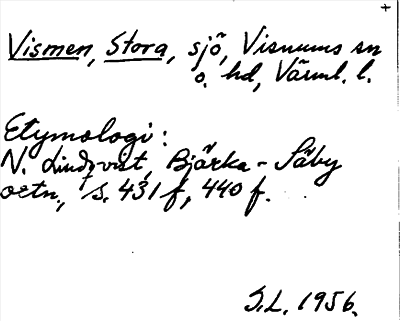 +
Vismen, Stora, sjö, Visnums sn
o. hd, Värml. l.
Etymologi:
N. Lindqvist, Bjärka-Säby
ortn., s. 431 f, 440 f.
S.L. 1956.